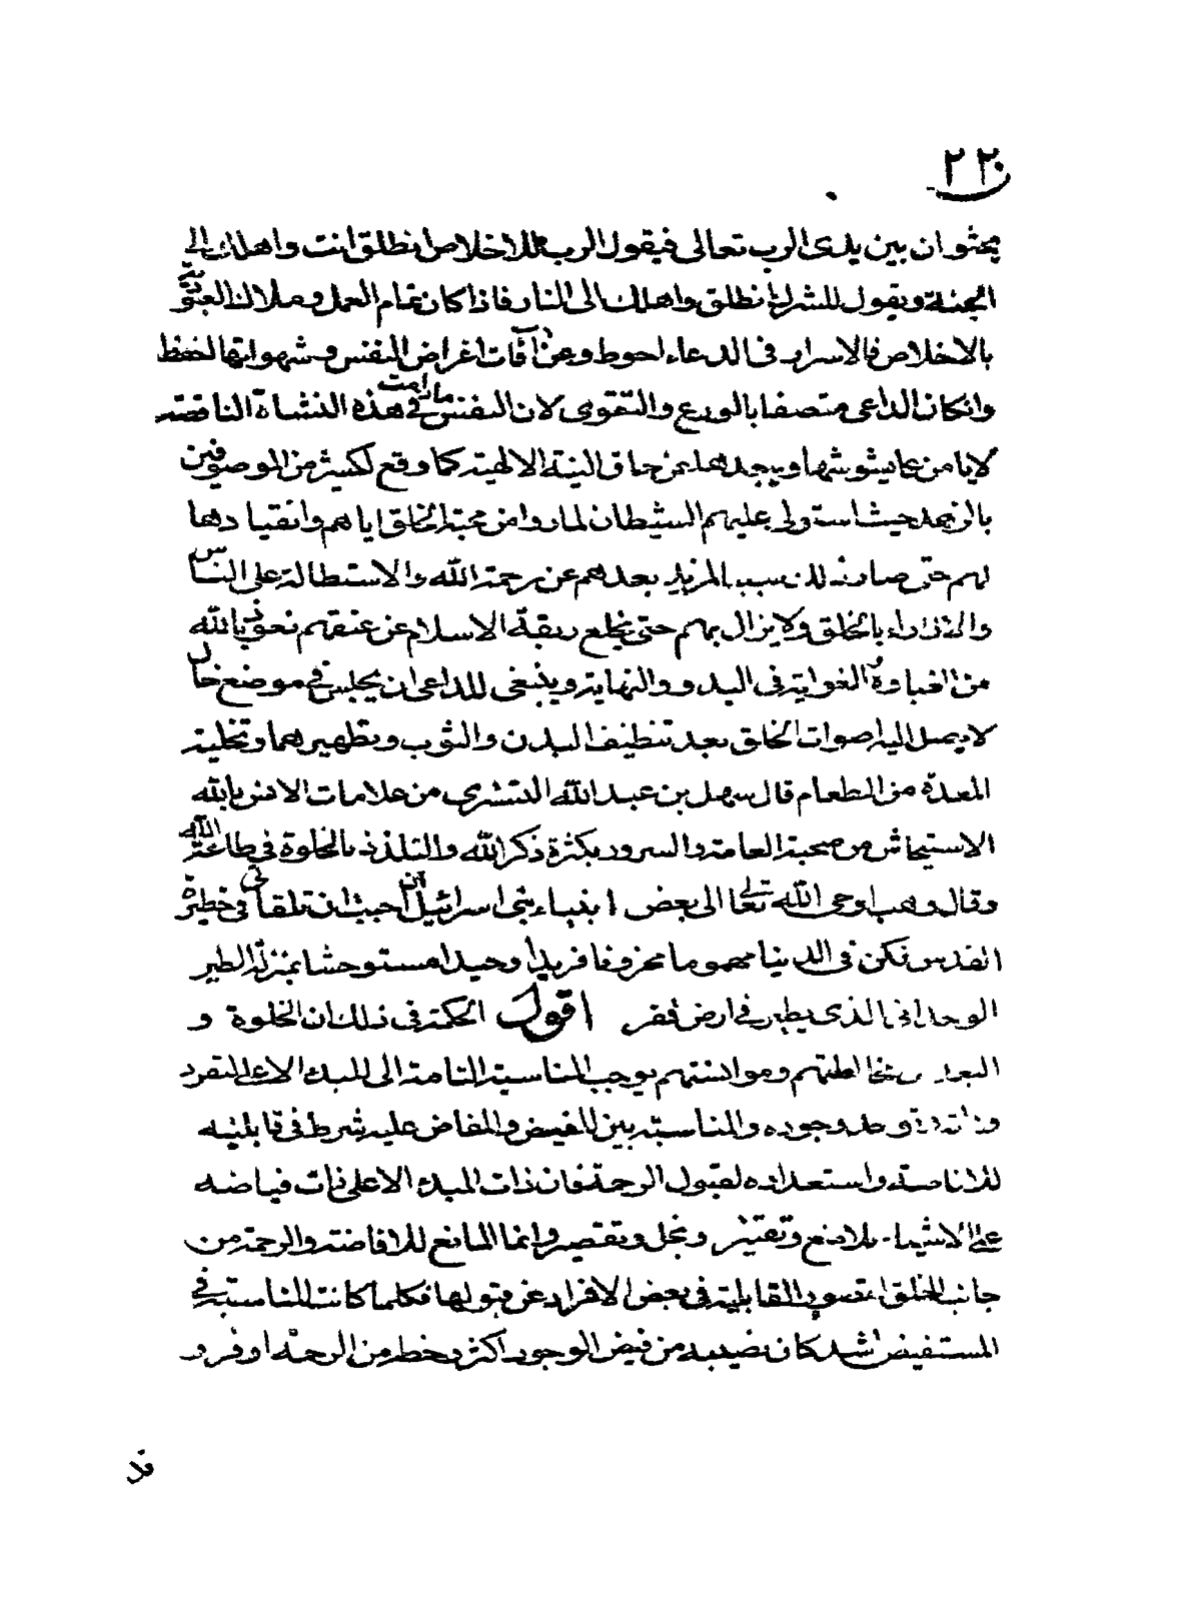 ٢٢٠
يجثوان بين يدى الرب تعالى فيقول الرب للاخلاص انطلق انت واهلك الى
الجنة ويقول للشرك انطلق واهلك الى النار فاذا كان تمام العمل وملاك العبودية
بالاخلاص فالاسرار فى الدعاء احوط وعن آفات اغراض النفس وشهواتها احفظ
وانكان الداعى متصفا بالورع والتقوى لان النفس مادامت فى هذه النشاة الناقصة
لايامن عما يشوشها ويبعدها عن حاق النية الالهية كما وقع لكثير من الموصوفين
بالزهد حيث استولى عليهم الشيطان لما راوا من محبة الخلق اياهم وانقيادها
لهم حتى صار ذلك سبب المزيد بعدهم عن رحمة الله والاستطالة على الناس
والازراء بالخلق ولايزال بهم حتى يخلع ربقة الاسلام عن عنقهم نعوذ بالله
من الغباوة الغواية فى البدو والنهاية وينبغى للداعى ان يجلس فى موضع خال
لايصل اليه اصوات الخلق بعد تنظيف البدن والثوب وتطهيرهما وتخلية
المعدة من الطعام قال سهل بن عبد الله التسترى من علامات الانس بالله
الاستيحاش من صحبة العامة والسرور بكثرة ذكر الله والتلذذ بالخلوة فى طاعة الله
وقال وهب اوحى الله تعالى الى بعض انبياء بنى اسرائيل ان احببت ان تلقانى فى حظيرة
القدس فكن فى الدنيا مهموما محزونا فريدا وحيدا مستوحشا بمنزلة الطير
الوحدانى الذى يطير فى ارض قفر اقول الحكمة فى ذلك ان الخلوة و
البعد عن مخالطتهم وموانستهم يوجب المناسبة التامة الى المبدء الاعلى المتفرد
وحدة وجوده والمناسبة بين المفيض والمفاض عليه شرط فى قابليته
للافاضة واستعداده لقبول الرحمة فان ذات المبدء الاعلى ذات فياضه
على الاشياء بلا منع وتقتير وبخل وتقصير وانما المانع للافاضة والرحمة من
جانب الخلق القابلية فى بعض الافراد عن قبولها فكلما كانت المناسبة فى
المستفيض اشد كان نصيبه من فيض الوجود اكثر وحظه من الرحمة اوفر و
قد